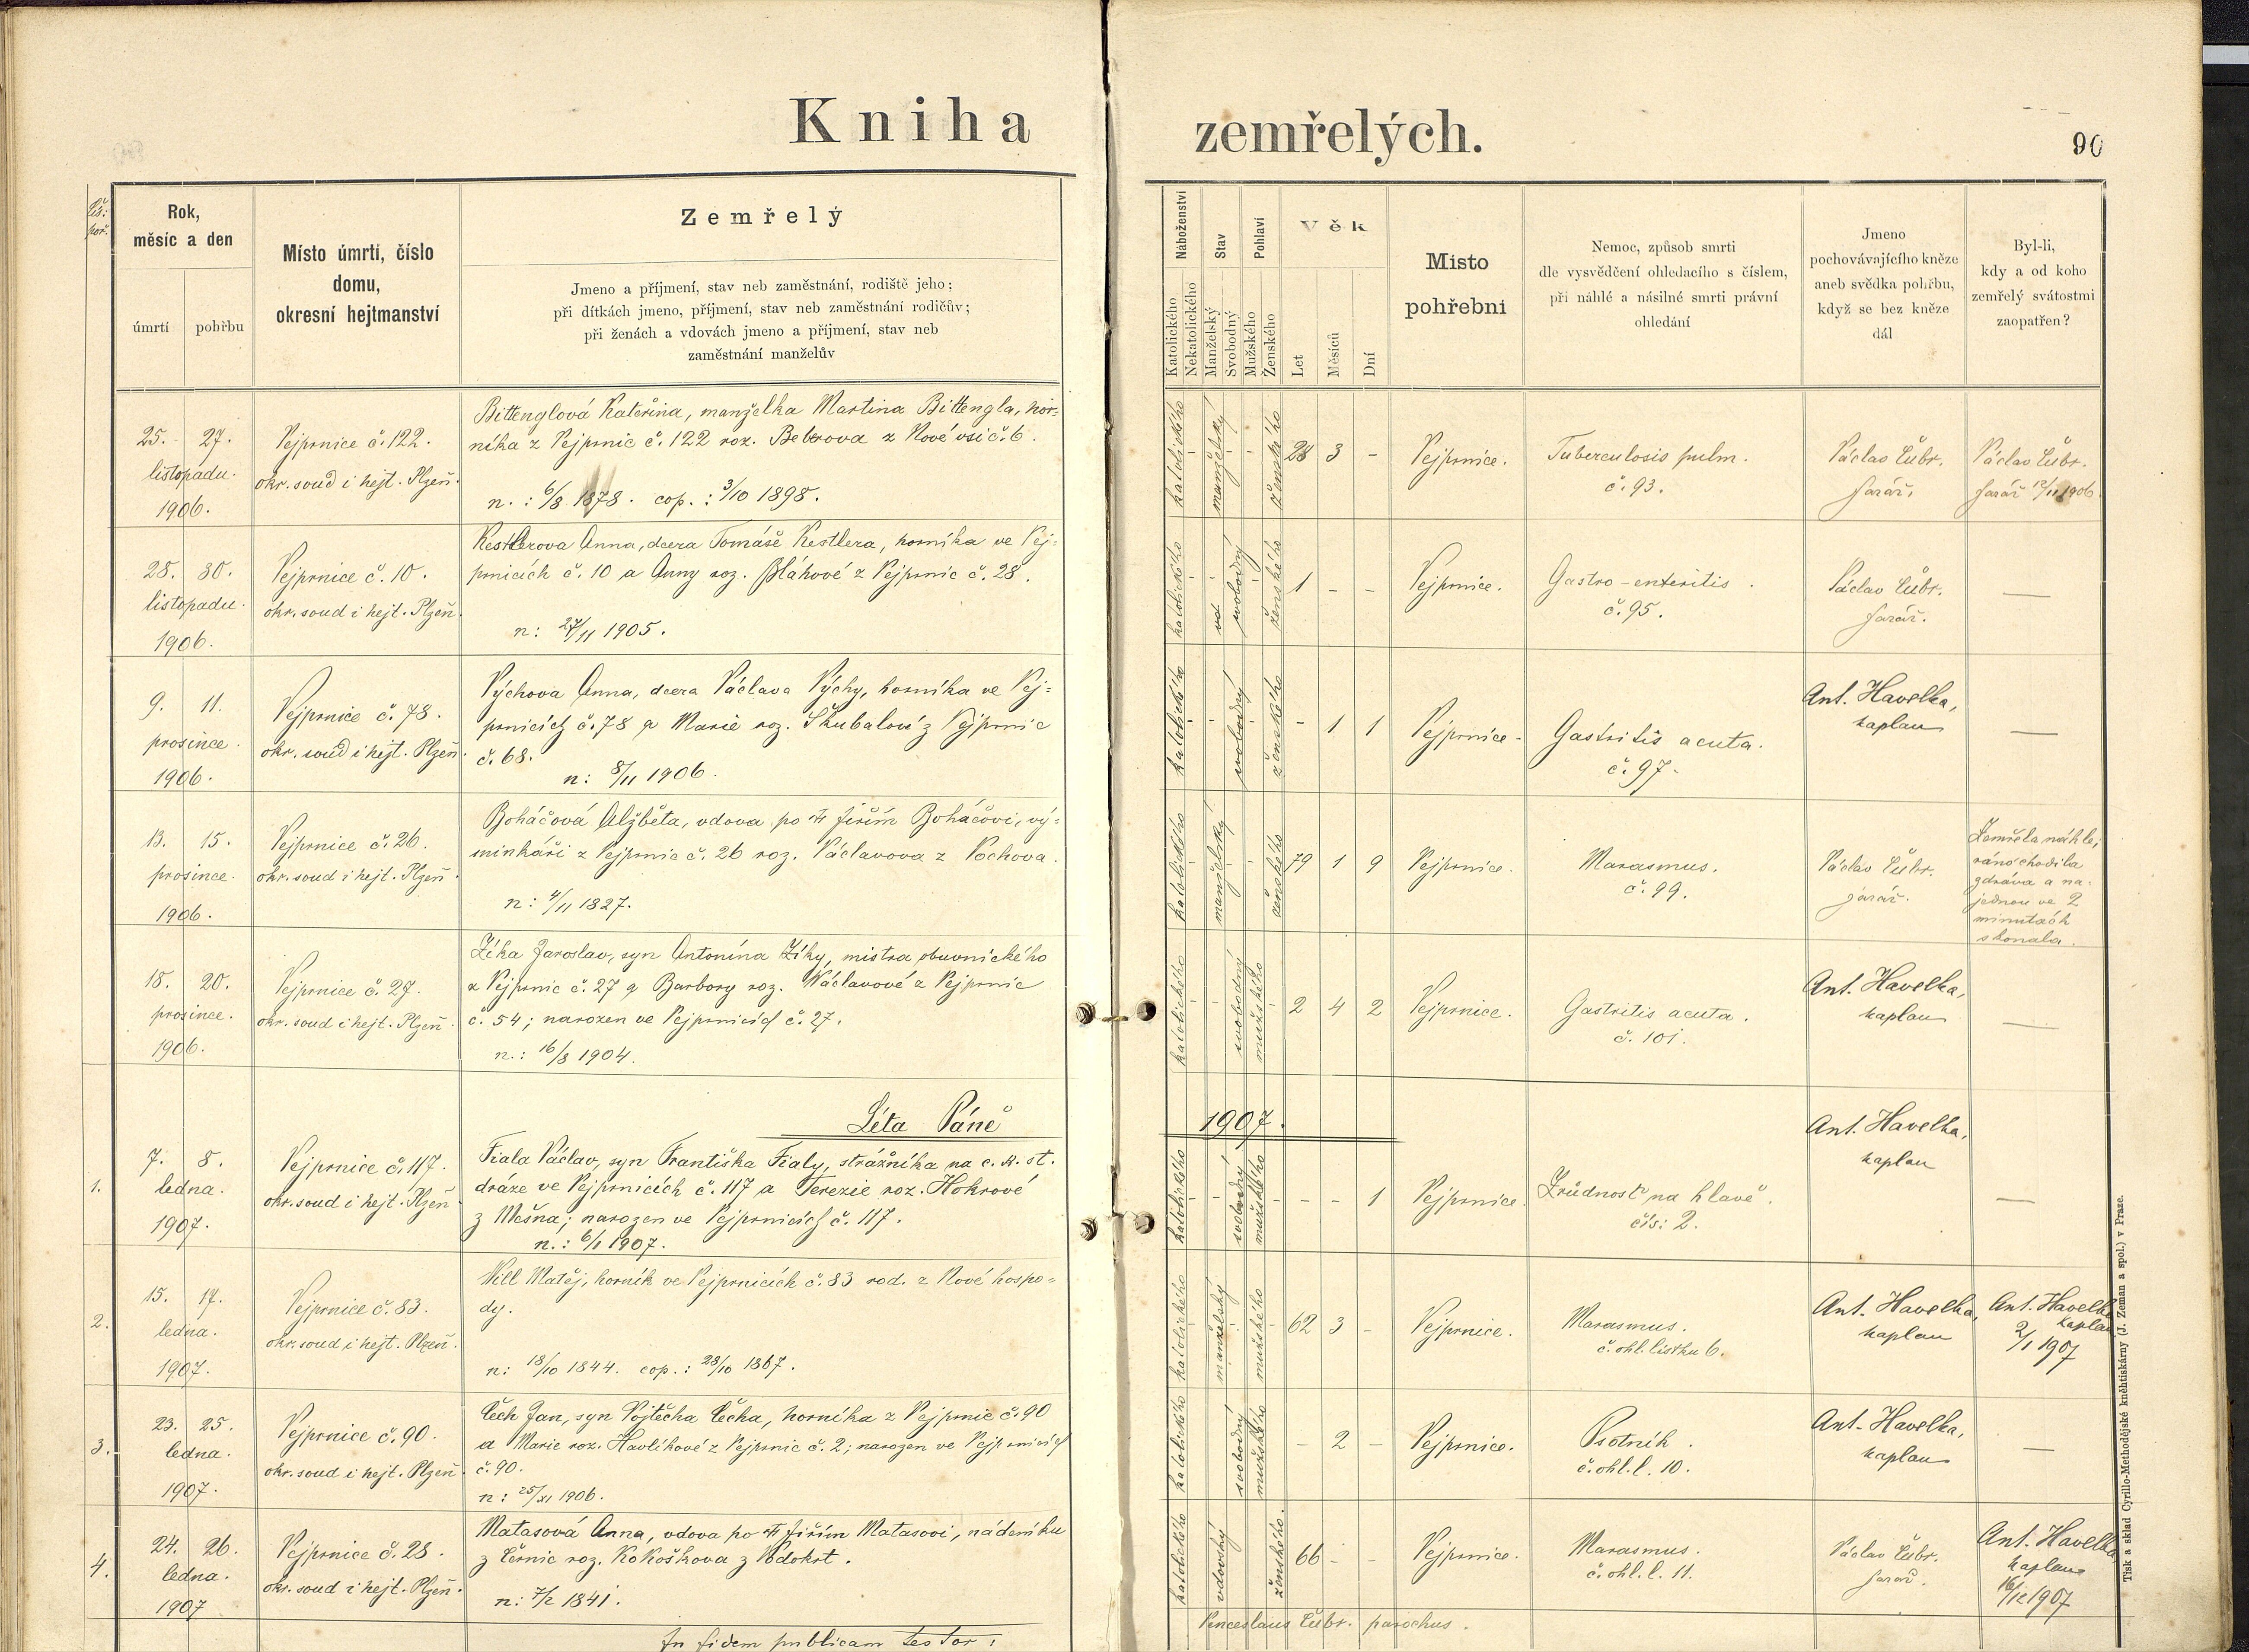 Kniha zemřelých.
90
Čís. poř.
Rok, měsíc a den
úmrtí
pohřbu
Místo úmrtí, číslo domu, okresní hejtmanství
Zemřelý
Jmeno a příjmení, stav neb zaměstnání, rodiště jeho;
při dítkách jmeno, příjmení, stav neb zaměstnání rodičův;
při ženách a vdovách jmeno a příjmení, stav neb
zaměstnání manželův
Náboženství
Katolického
Nekatolického
Stav
Manželský
Svobodný
Pohlaví
Mužského
Ženského
Věk
Let
Měsíců
Dní
Místo pohřební
Nemoc, způsob smrti
dle vysvědčení ohledacího s číslem,
při náhlé a násilné smrti právní
ohledání
Jmeno
pochovávajícího kněze
aneb svědka pohřbu,
když se bez kněze
dál
Byl-li,
kdy a od koho
zemřelý svátostmi
zaopatřen?
25. 27.
listopadu.
1906.
Vejprnice č. 122.
okr. soud i hejt. Plzeň.
Bittenglová Kateřina, manželka Martina Bittengla, hor-
níka z Vejprnic č. 122 roz. Bebrova z Nové vsi č. 6.
n.: 6/8 1878. cop.: 3/10 1898.
katolického - manželský - - ženského
28 3 -
Vejprnice.
Tuberculosis pulm.
č. 93.
Václav Čubr.
farář.
Václav Čubr.
farář 12/11 1906
28. 30.
listopadu.
1906.
Vejprnice č. 10.
okr. soud i hejt. Plzeň.
Kestlerova Anna, dcera Tomáše Kestlera, horníka ve Vej-
prnicích č. 10 a Anny roz. Bláhové z Vejprnic č. 28.
n: 27/11 1905.
katolického - svobodný - ženského
1 - -
Vejprnice.
Gastro-enteritis.
č. 95.
Václav Čubr.
farář.
—
9. 11.
prosince.
1906.
Vejprnice č. 78.
okr. soud i hejt. Plzeň.
Výchova Anna, dcera Václava Výchy, horníka ve Vej-
prnicích č. 78 a Marie roz. Škubalové z Vejprnic
č. 68.
n: 8/11 1906.
katolického - - svobodný - ženského
- 1 1
Vejprnice.
Gastritis acuta.
č. 97.
Ant. Havelka,
kaplan
—
13. 15.
prosince.
1906.
Vejprnice č. 26.
okr. soud i hejt. Plzeň.
Boháčová Alžběta, vdova po † Jiřím Boháčovi, vý-
minkáři z Vejprnic č. 26 roz. Václavova z Vochova.
n: 4/11 1827.
katolického - manželský - - ženského
79 1 9
Vejprnice.
Marasmus.
č. 99.
Václav Čubr.
farář.
Zemřela náhle;
ráno chodila
zdráva a na-
jednou ve 2
minutách
skonala.
18. 20.
prosince.
1906.
Vejprnice č. 27.
okr. soud i hejt. Plzeň.
Zíka Jaroslav, syn Antonína Zíky, mistra obuvnického
z Vejprnic č. 27 a Barbory roz. Václavové z Vejprnic
č. 54; narozen ve Vejprnicích č. 27.
n.: 16/8 1904.
katolického - - svobodný mužského -
2 4 2
Vejprnice.
Gastritis acuta.
č. 101.
Ant. Havelka,
kaplan
—
Léta Páně 1907.
1.
7. 8.
ledna.
1907.
Vejprnice č. 117.
okr. soud i hejt. Plzeň
Fiala Václav, syn Františka Fialy, strážníka na c. k. st.
dráze ve Vejprnicích č. 117 a Terezie roz. Hohrové
z Mešna; narozen ve Vejprnicích č. 117.
n.: 6/1 1907.
katolického - - svobodný mužského -
- - 1
Vejprnice.
Zrůdnosť na hlavě.
čís: 2.
Ant. Havelka,
kaplan
—
2.
15. 17.
ledna.
1907.
Vejprnice č. 83.
okr. soud i hejt. Plzeň.
Vill Matěj, horník ve Vejprnicích č. 83 rod. z Nové hospo-
dy.
n: 18/10 1844. cop.: 28/10 1867.
katolického - manželský - mužského -
62 3 -
Vejprnice.
Marasmus.
č. ohl. lístku 6.
Ant. Havelka,
kaplan
Ant. Havelka
kaplan
2/1 1907
3.
23. 25.
ledna.
1907.
Vejprnice č. 90.
okr. soud i hejt. Plzeň.
Čech Jan, syn Vojtěcha Čecha, horníka z Vejprnic č. 90
a Marie roz. Havlíkové z Vejprnic č. 2; narozen ve Vejprnicích
č. 90.
n: 25/XI 1906.
katolického svobodný mužského
- 2 -
Vejprnice.
Psotník.
č. ohl. l. 10.
Ant. Havelka,
kaplan
—
4.
24. 26.
ledna.
1907
Vejprnice č. 28.
okr. soud i hejt. Plzeň.
Matasová Anna, vdova po † Jiřím Matasovi, nádeníku
z Černic roz. Kokoškova z Vodokrt.
n: 7/2 1841.
katolického vdovský ženského.
66 - -
Vejprnice.
Marasmus.
č. ohl. l. 11.
Václav Čubr.
farář.
Ant. Havelka
kaplan
In fidem publicam testor:
Venceslaus Čubr. parochus.
Tisk a sklad Cyrillo-Methodějské knihtiskárny (J. Zeman a spol.) v Praze.